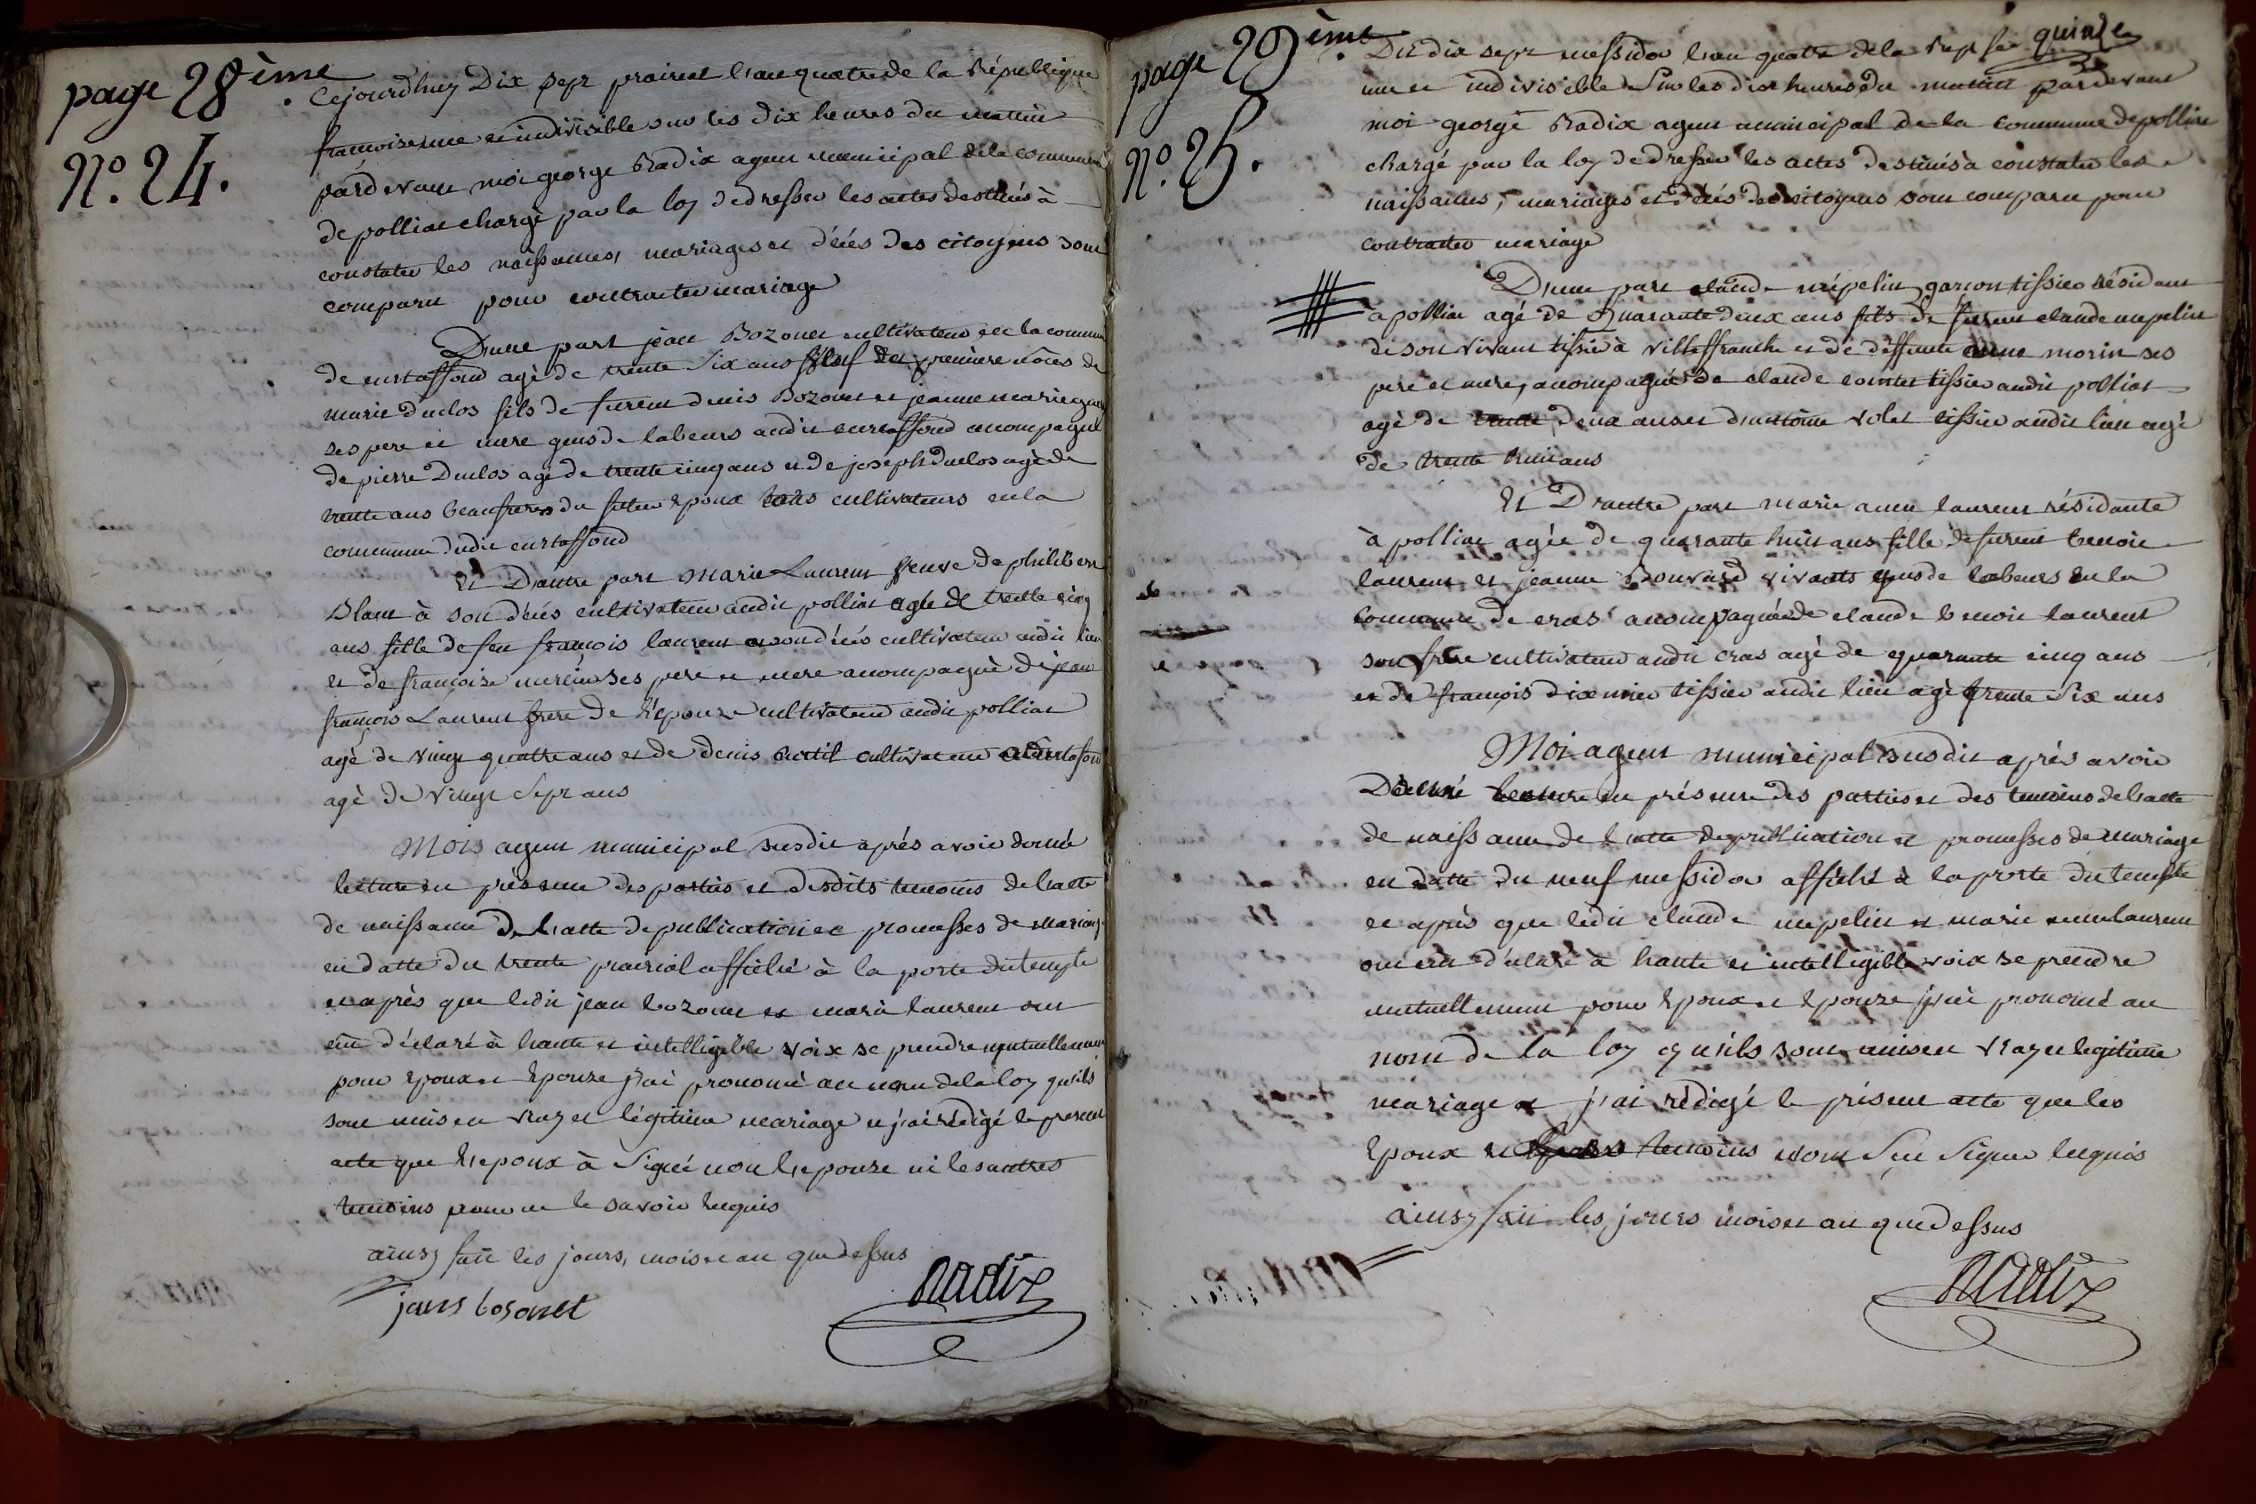 page 28ème
N°. 24.
Cejourdhuy Dix sept prairial l'an quatre de la République
francoise une et indivisible sur les dix heures du matin
pardevant moi george Radix agent municipal de la commune
de polliat chargé par la loy de dresser les actes destinés à
constater les naissances, mariages et décés des citoyens sont
comparu pour contracter mariage
Dune part jean Bozonet cultivateur en la commune
de curtaffond agé de trente six ans veuf des première nôces de
marie duclos fils de furent denis Bozonet et jeanne marie
ses pere et mere gens de labeurs audit curtaffond acompagné
de pierre Duclos agé de trente cinq ans et de joseph duclos agé de
trente ans beaufreres du futur epoux tous cultivateurs en la
commune dudit curtaffond
Et Dautre part Marie Laurent veuve de philibert
Blanc à son décés cultivateur audit polliat agée de trente cinq
ans fille de feu francois laurent a son décés cultivateur audit lieu
et de francoise ses pere et mere acompagné de jean
francois Laurent frere de l'epouze cultivateur audit polliat
agé de vingt quatre ans et de denis cultivateur
agé de vingt sept ans
Moi agent municipal susdit aprés avoir donné
lecture en présence des parties et desdits temoins de l'acte
de naissance de l'acte de publication et promesses de mariage
en datte du trente prairial affiché à la porte du temple
et aprés que ledit jean bozonet et marie laurent ont
eut déclaré à haute et intelligible voix se prendre mutuellement
pour epoux et epouze j'ai prononcé au nom de la loy qu'ils
sont unis en vray et légitime mariage et j'ai rédigé le présent
acte que l'epoux à signé non l'epouze ni les autres
temoins pour ne le savoir requis
ainsy fait les jours, mois et an que dessus
jean bosonet
Radix
page 29ème
N°. 25.
quinze
Du dix sept messidor l'an quatre de la Rep
une et indivisible sur les dix heures du matin pardevant
moi george Radix agent municipal de la commune de polliat
chargé par la loy de dresser les actes destinés à constater les
naissances, mariages et décés des citoyens sont comparu pour
contracter mariage
Dune part claude népelin garcon tissier résidant
à polliat agé de Quarante deux ans fils de furent claude nepelin
de son vivant tissier à villeffranche et de deffunte anne morin ses
pere et mere, acompagnés de claude tissier audit polliat
agé de trente deux ans et dantoine volet tissier audit lieu agé
de trente huit ans
Et Dautre part marie anne laurent résidante
à polliat agée de quarante huit ans fille de furent benoit
laurent et jeanne Bouvard vivants gens de labeurs en la
commune de cras acompagnée de claude benoit laurent
son frere cultivateur audit cras agé de quarante cinq ans
et de francois tissier audit lieu agé trente six ans
Moi agent municipal susdit aprés avoir
donné lecture en présence des parties et des temoins de l'acte
de naissance de l'acte de publication et promesses de mariage
en datte du neuf messidor affiché à la porte du temple
et aprés que ledit claude nepelin et marie anne laurent
ont eut déclaré à haute et intelligible voix se prendre
mutuellement pour epoux et epouze j'ai prononcé au
nom de la loy qu'ils sont unis en vray et legitime
mariage et j'ai rédigé le présent acte que les
epoux et temoins n'ont sçu signer requis
ainsy fait les jours mois et an que dessus
Radix